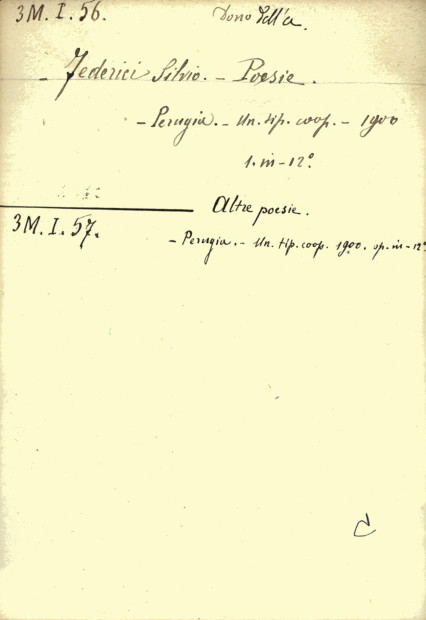 3M. I. 56. Dono dell'a.
- Federici Silvio. - Poesie.
- Perugia. - Un. tip. coop. - 1900
1. in - 12°
Altre poesie.
3M. I. 57.
- Perugia. - Un. tip. coop. 1900. op. in - 12°